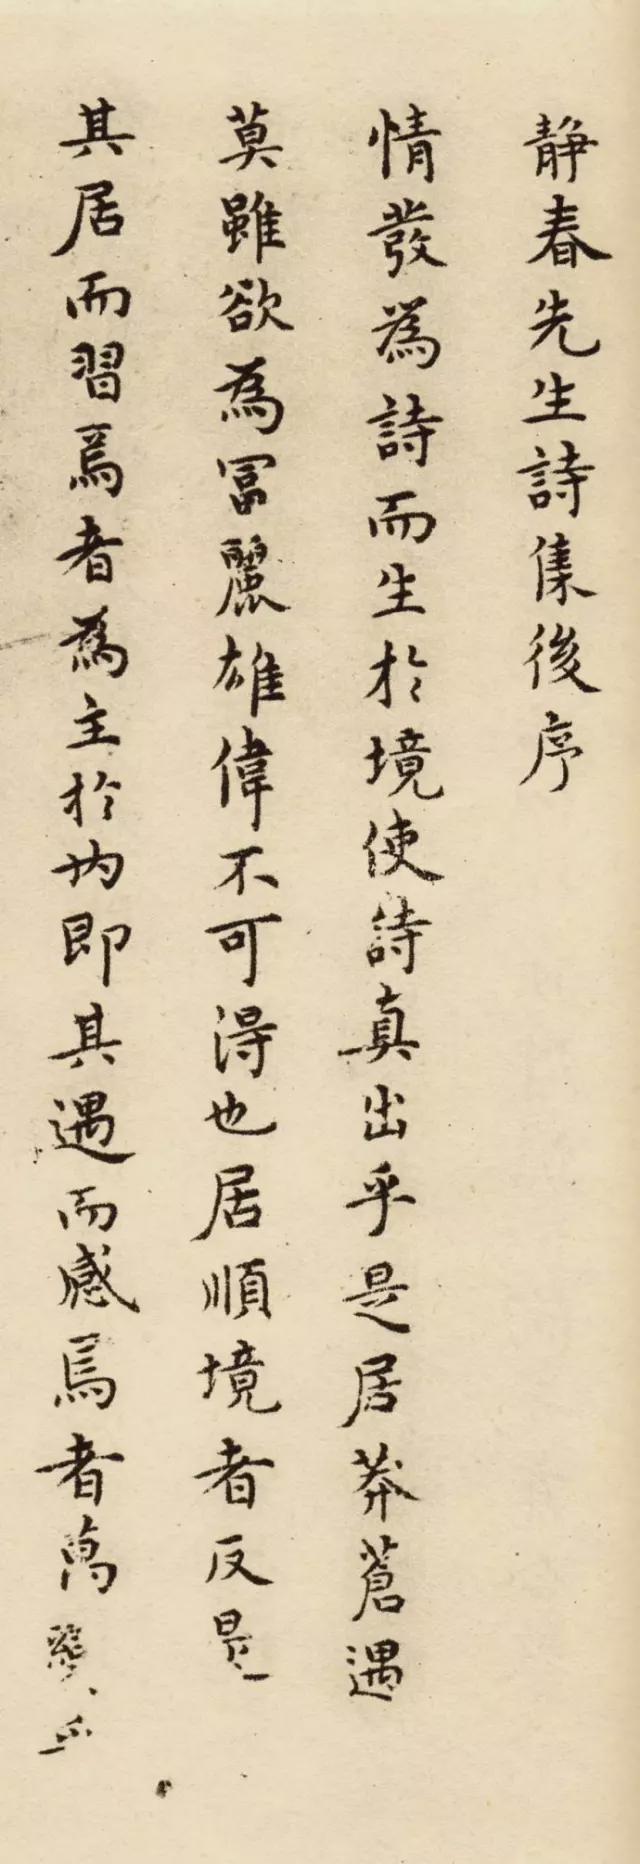 静春先生詩集後序
情發為詩而生於境使詩真出乎是居莽蒼遇
莫雖欲為冨麗雄偉不可得也居順境者反是
其居而習焉者為主於内即其遇而感焉者萬變